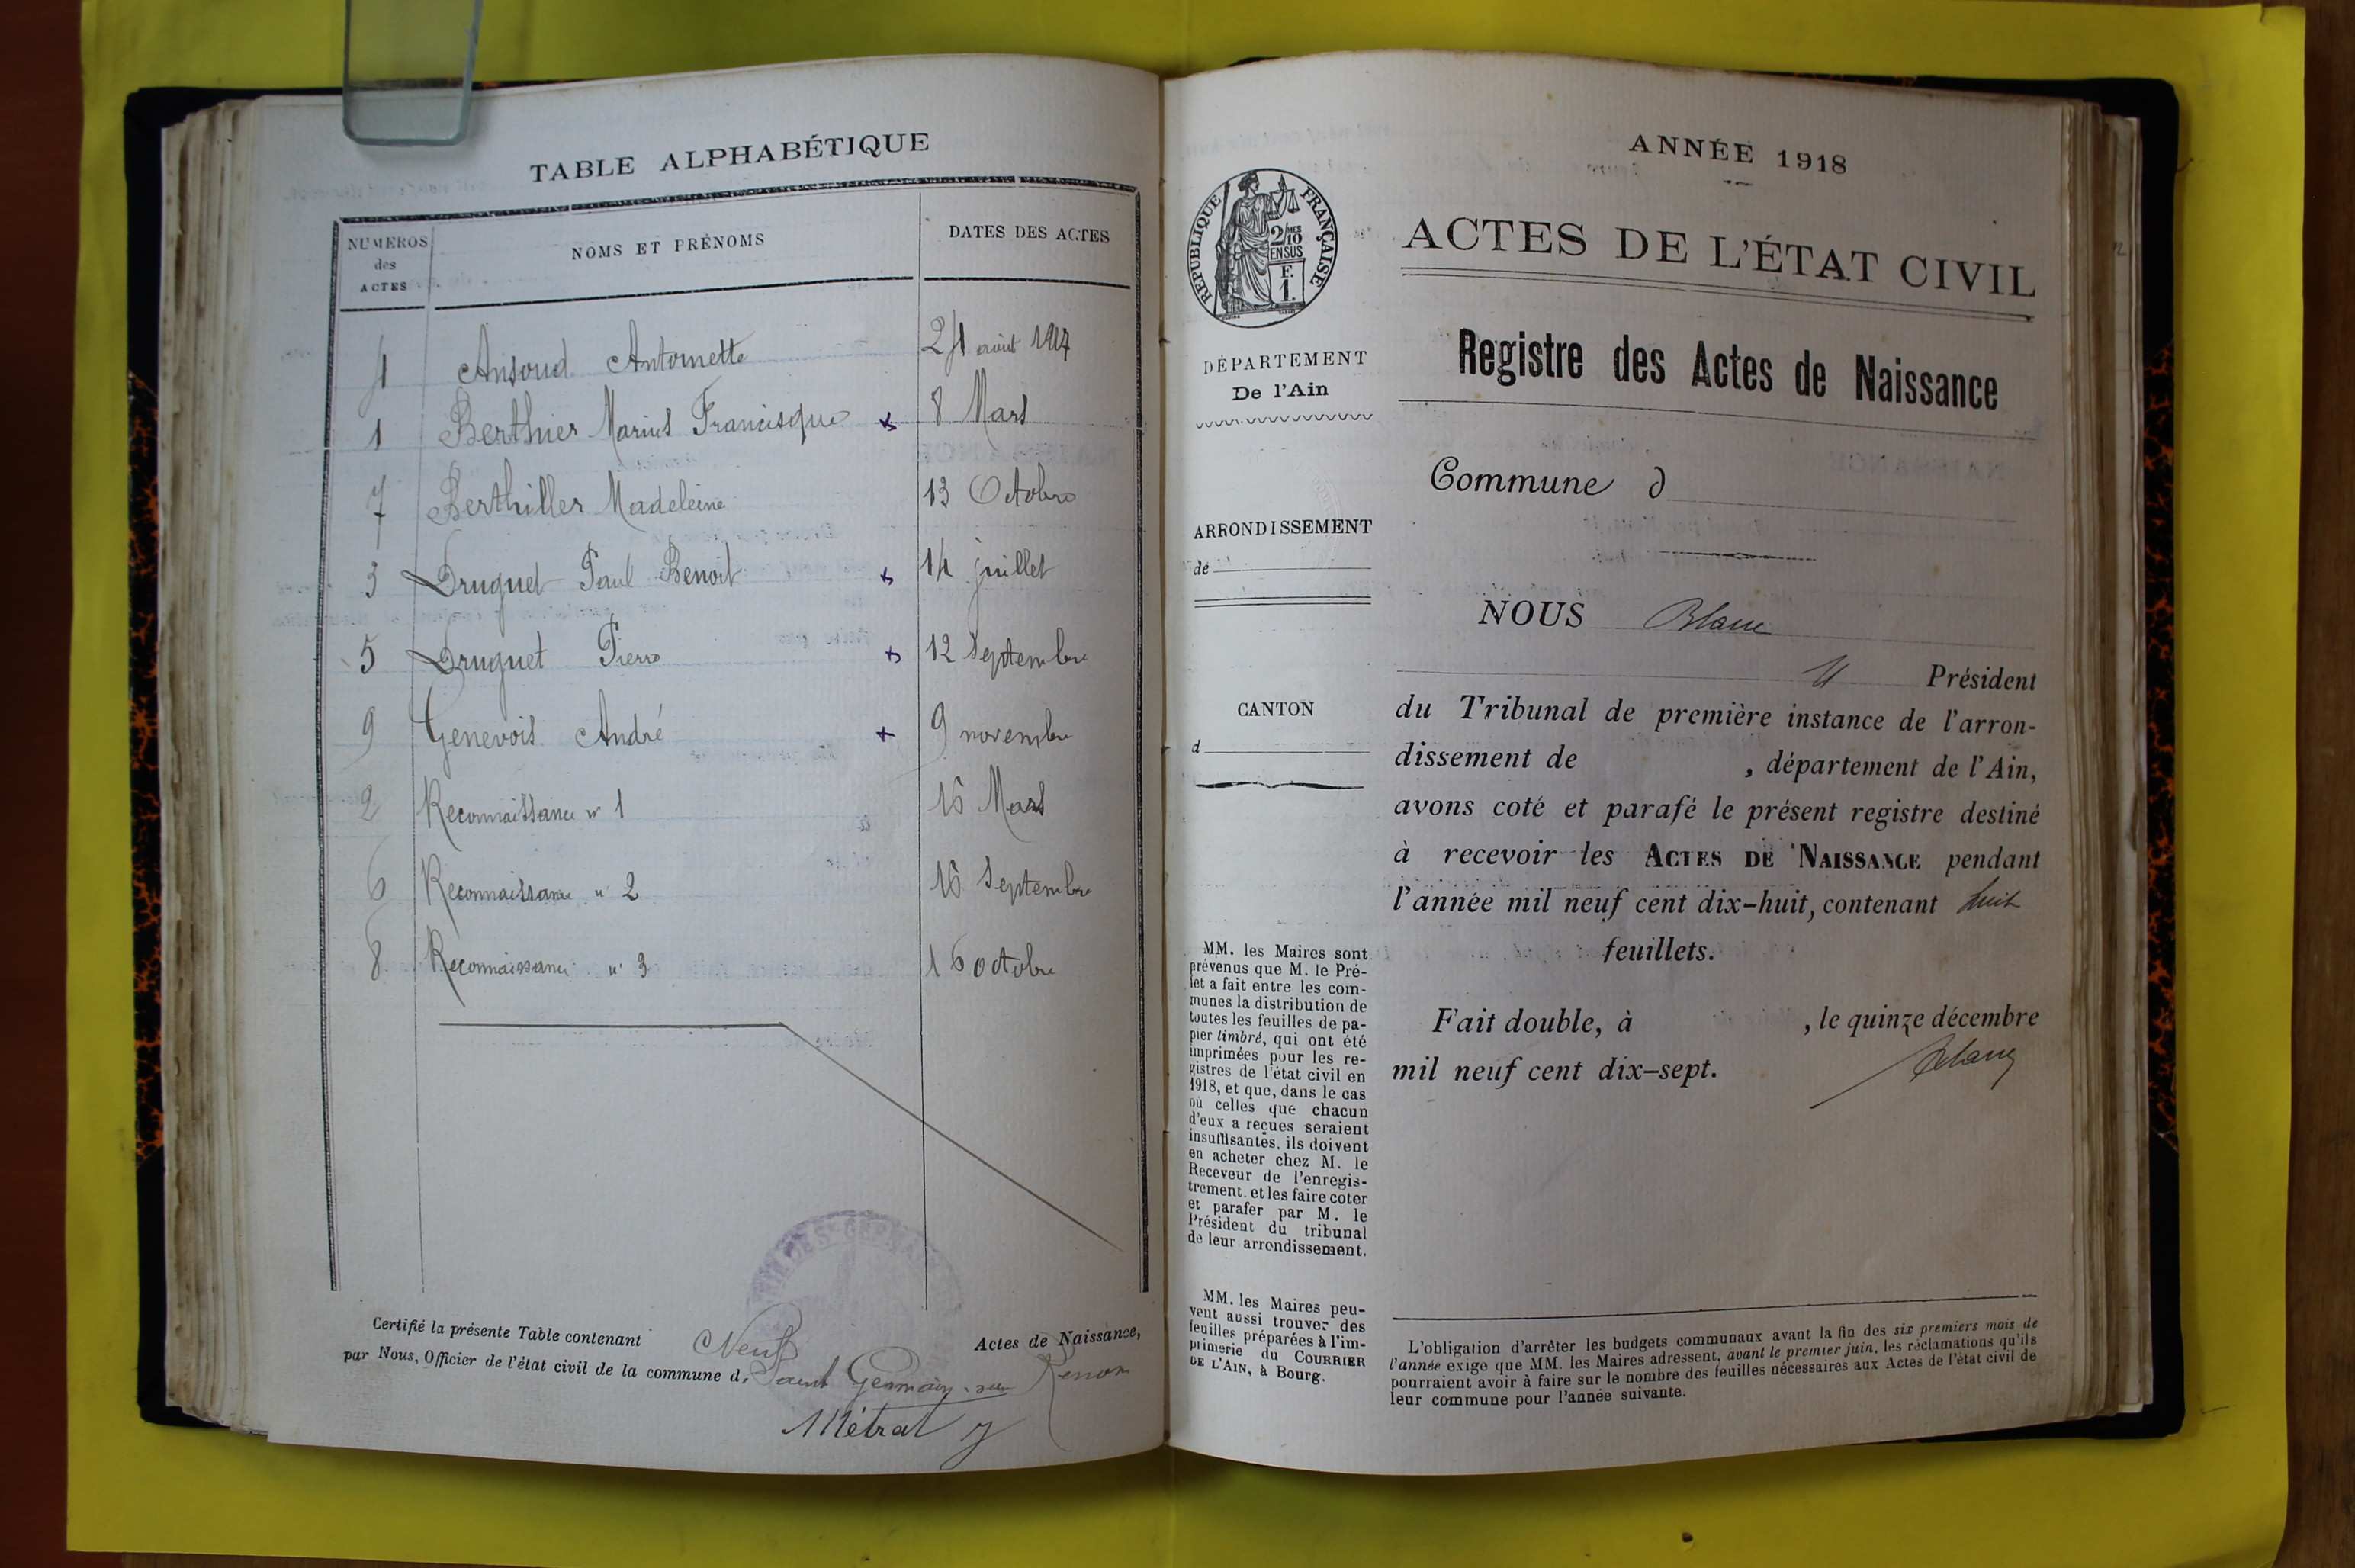 TABLE ALPHABÉTIQUE
NUMÉROS des ACTES
NOMS ET PRÉNOMS
DATES DES ACTES
4 Ansoud Antoinette 24 août 1917
1 Berthier Marius Francisque x 8 Mars
7 Berthiller Madeleine 13 Octobre
3 Druguet Paul Benoit x 14 juillet
5 Druguet Pierre x 12 Septembre
9 Genevois André x 9 novembre
2 Reconnaissance n° 1 15 Mars
6 Reconnaissance n° 2 15 Septembre
8 Reconnaissance n° 3 16 octobre
Certifié la présente Table contenant Neuf Actes de Naissance,
par Nous, Officier de l'état civil de la commune d. Saint Germain-sur Renon
Métral J
ANNÉE 1918
RÉPUBLIQUE FRANÇAISE
2/10 MES
EN SUS
F.
1.
ACTES DE L'ÉTAT CIVIL
Registre des Actes de Naissance
DÉPARTEMENT
De l'Ain
ARRONDISSEMENT
de
CANTON
d
Commune d
NOUS Blanc
Président
du Tribunal de première instance de l'arron-
dissement de , département de l'Ain,
avons coté et parafé le présent registre destiné
à recevoir les ACTES DE NAISSANCE pendant
l'année mil neuf cent dix-huit, contenant huit
feuillets.
Fait double, à , le quinze décembre
mil neuf cent dix-sept.
MM. les Maires sont
prévenus que M. le Pré-
fet a fait entre les com-
munes la distribution de
toutes les feuilles de pa-
pier timbré, qui ont été
imprimées pour les re-
gistres de l'état civil en
1918, et que, dans le cas
où celles que chacun
d'eux a reçues seraient
insuffisantes, ils doivent
en acheter chez M. le
Receveur de l'enregis-
trement, et les faire coter
et parafer par M. le
Président du tribunal
de leur arrondissement.
MM. les Maires peu-
vent aussi trouver des
feuilles préparées à l'im-
primerie du COURRIER
DE L'AIN, à Bourg.
L'obligation d'arrêter les budgets communaux avant la fin des six premiers mois de
l'année exige que MM. les Maires adressent, avant le premier juin, les réclamations qu'ils
pourraient avoir à faire sur le nombre des feuilles nécessaires aux Actes de l'état civil de
leur commune pour l'année suivante.